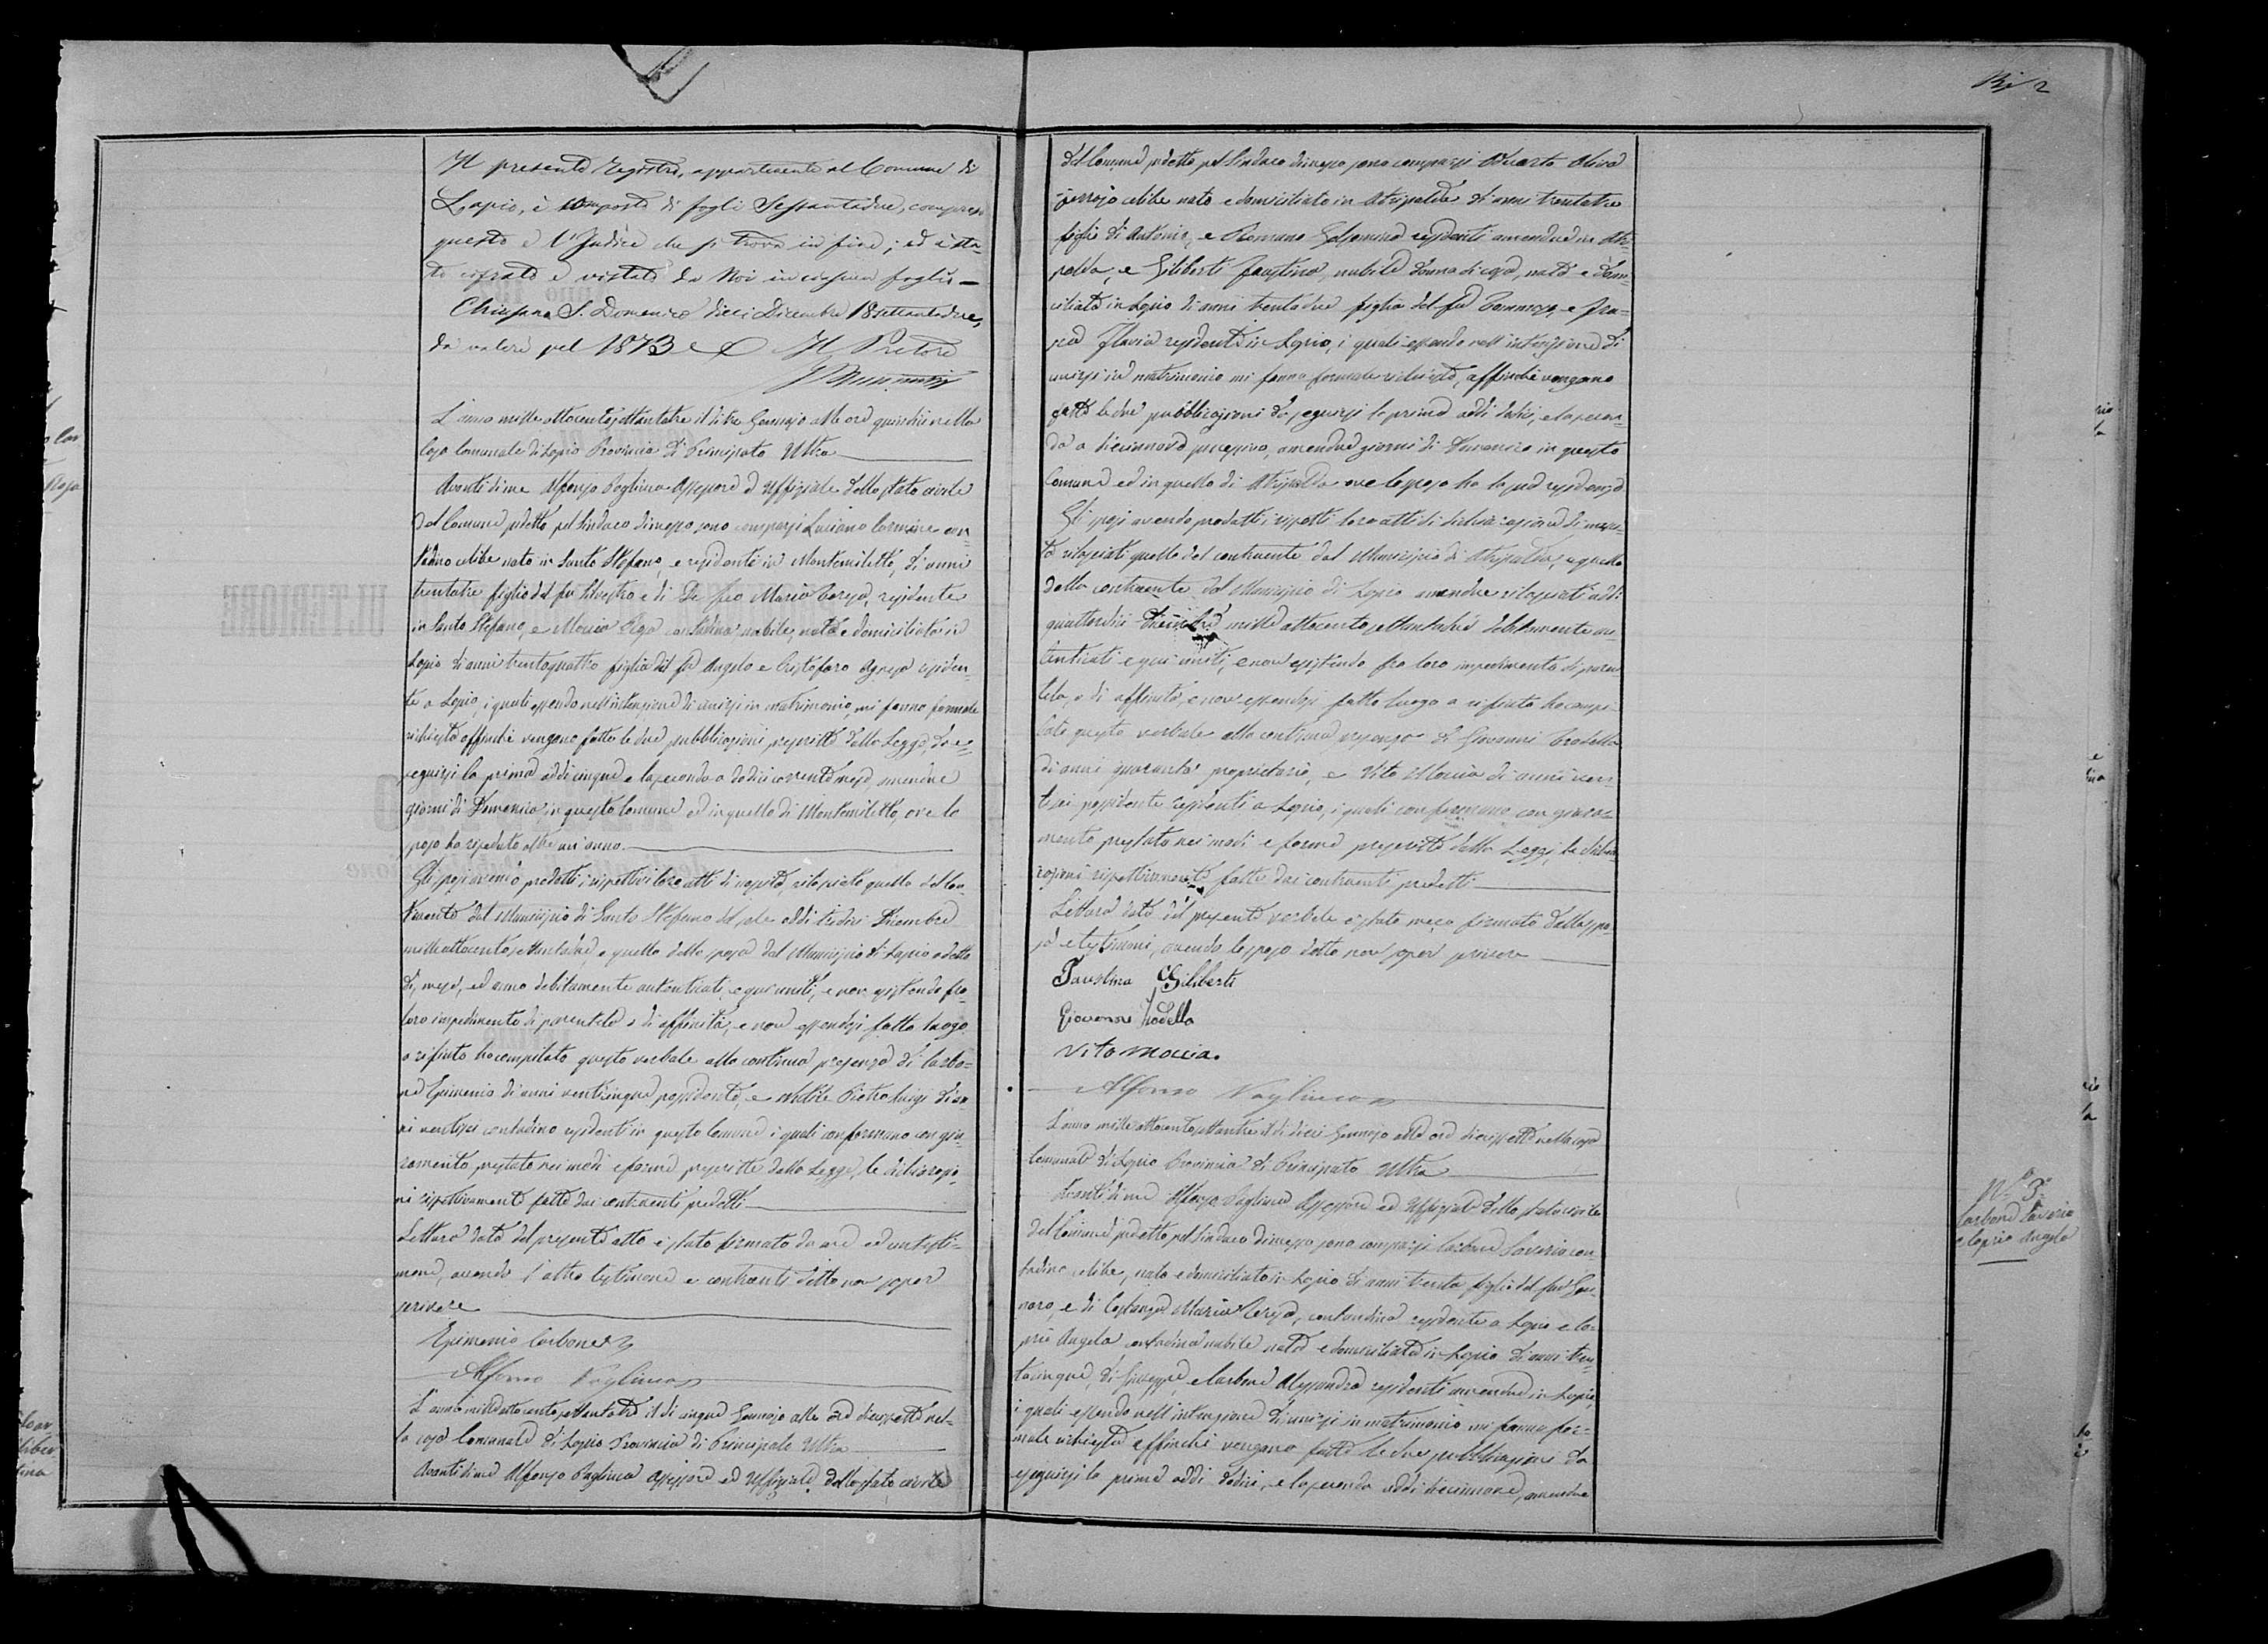 Il presente registro, appartenente al Comune di
Lapio, è composto di fogli Sessantadue, compreso
questo e l'Indice che si trova in fine; ed è sta-
to cifrato e vistato da Noi in ciascun foglio —
Chiusano S. Domenico dieci Dicembre 18settantadue,
da valere pel 1873 Il Pretore
L'anno mille ottocento settantatre il dì tre Gennajo alle ore quindici nella
Casa Comunale di Lapio Provincia di Principato Ultra
Avanti di me Alfonso Pagliuca Assessore ed Uffiziale dello stato civile
del Comune pdetto pel Sindaco dimesso sono comparsi Luciano Carmine con-
tadino celibe nato in Santo Stefano, e residente in Montemiletto, di anni
trentatre figlio del fu Silvestro e di De Feo Maria Teresa, residente
in Santo Stefano, e Moccia Rosa contadina nubile, nata e domiciliata in
Lapio di anni trentaquattro figlia del fu Angelo e Cristofaro Agnesa residen-
te a Lapio, i quali essendo nell'intenzione di unirsi in matrimonio, mi fanno formale
richiesta affinchè vengano fatte le due pubblicazioni prescritte dalla Legge, da e-
seguirsi la prima addi cinque e la seconda a dodici corrente mese, amendue
giorni di Domenica, in questo Comune ed in quello di Montemiletto, ove lo
sposo ha risieduto oltre un'anno.
Gli sposi avendo prodotti i rispettivi loro atti di nascita, rilasciato quello del con-
traente dal Municipio di Santo Stefano del sole addi tredici Dicembre
mille ottocento settantadue, e quello della sposa dal Municipio di Lapio a detto
dì, mese, ed anno debitamente autenticati, e qui uniti, e non esistendo fra
loro impedimento di parentela o di affinità, e non essendosi fatto luogo
a rifiuto ho compilato questo verbale alla continua presenza di Carbo-
ne Epimenio di anni venticinque possidente, e Pietro Luigi di an-
ni ventisei contadino residenti in questo Comune i quali confermano con giu-
ramento, prestato nei modi e forme prescritte dalla Legge, le dichiarazio-
ni rispettivamente fatte dai contraenti predetti
Lettura data del presente atto è stato firmato da me ed un testi-
mone, avendo l'altro testimone e contraenti detto non saper
scrivere
Epimenio Carbone
Alfonso Pagliuca
L'anno mille ottocento settantatre il dì cinque Gennajo alle ore diecissette nel-
la casa Comunale di Lapio Provincia di Principato Ultra
Avanti di me Alfonso Pagliuca Assessore ed Uffiziale dello stato civile
Bis 2
del Comune pdetto pel Sindaco dimesso sono comparsi Oliva
celibe nato e domiciliato in Atripalda di anni trentatre
figlio di Antonio, e Romano Gelsomina residenti amendue in Atri-
palda, e Giliberti Faustina, nubile donna di casa, nata e domi-
ciliata in Lapio di anni trentadue figlia del fu Tommaso, e
Flavia residente in Lapio, i quali essendo nell'intenzione di
unirsi in matrimonio mi fanno formale richiesta, affinchè vengano
fatte le due pubblicazioni da seguirsi la prima addi dodici, e la secon-
da a diecinnove successivo, amendue giorni di Domenica in questo
Comune ed in quello di Atripalda ove lo sposo ha la sua residenza
Gli sposi avendo prodotti i rispetti loro atti di dichiarazione di nasci-
ta rilasciati quello del contraente dal Municipio di Atripalda, e quello
della contraente dal Municipio di Lapio amendue rilasciati addi
quattordici Dicembre mille ottocento settantadue debitamente au-
tenticati e qui uniti, e non esistendo fra loro impedimento di paren-
tela, o di affinità, e non essendosi fatto luogo a rifiuto ho compi-
lato questo verbale alla continua presenza di Giovanni Trodella
di anni quaranta proprietario, e Vito Moccia di anni ven-
tisei possidente residenti a Lapio, i quali confermano con giura-
mento prestato nei modi e forme prescritte dalla Legge, le dichia-
razioni rispettivamente fatte dai contraenti predetti
Lettura data del presente verbale è stato meco firmato dalla spo-
sa e testimoni, avendo lo sposo detto non saper scrivere
Faustina Giliberti
Giovanni Trodella
Vito Moccia.
Alfonso Pagliuca
L'anno mille ottocento settantatre il dì dieci Gennajo alle ore diecissette nella casa
Comunale di Lapio Provincia di Principato Ultra
Avanti di me Alfonso Pagliuca Assessore ed Uffiziale dello stato civile
del Comune pdetto pel Sindaco dimesso sono comparsi Carbone Saverio con-
tadino celibe, nato e domiciliato in Lapio di anni trenta figlio del fu Gen-
naro, e di Costanza Maria Teresa, contandina residente a Lapio e Ca-
prio Angela contadina nubile nata e domiciliata in Lapio di anni tren-
tacinque, di Giuseppe, e Carbone Alessandra residenti amendue in Lapio,
i quali essendo nell'intenzione di unirsi in matrimonio mi fanno for-
male richiesta affinchè vengano fatte le due pubblicazioni da
eseguirsi la prima addi dodici, e la seconda addi diecinnove, amendue
N.° 3.
Carbone Saverio
e Caprio Angela